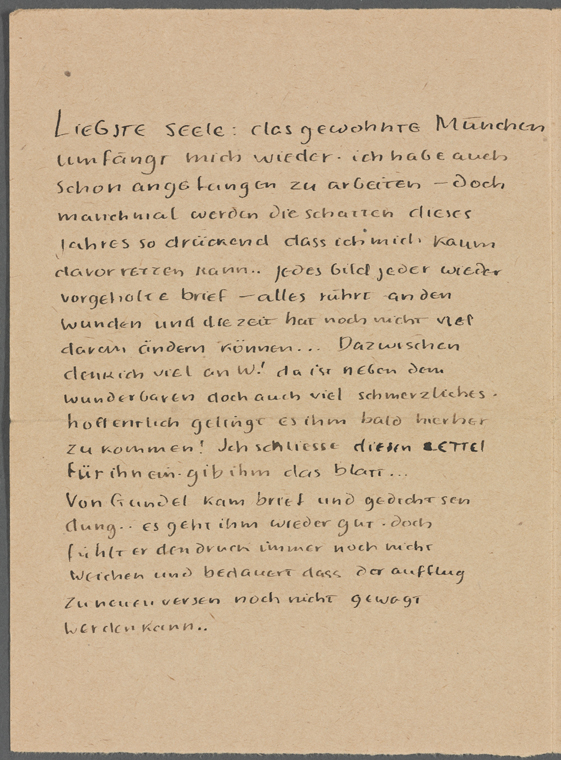 LiEGSTE SEELE: das gewohnte München
umfängt mich wieder. ich habe auch
schon angefangen zu arbeiten – doch
manchmal werden die schatten dieses
jahres so drückend dass ich mich kaum
davor retten kann.. jedes bild jeder wieder
vorgeholte brief – alles rührt an den
wunden und die zeit hat noch nicht viel
daran ändern können... Dazwischen
denk ich viel an W.! da ist neben dem
wunderbaren doch auch viel schmerzliches.
hoffentlich gelingt es ihm bald hierher
zu kommen! Ich schliesse diesen ZETTEL
für ihn ein. gib ihm das blatt...
Von Gundel kam brief und gedichtsen
dung.. es geht ihm wieder gut. doch
fühlt er den druck immer noch nicht
weichen und bedauert dass der aufflug
zu neuen versen noch nicht gewagt
werden kann..